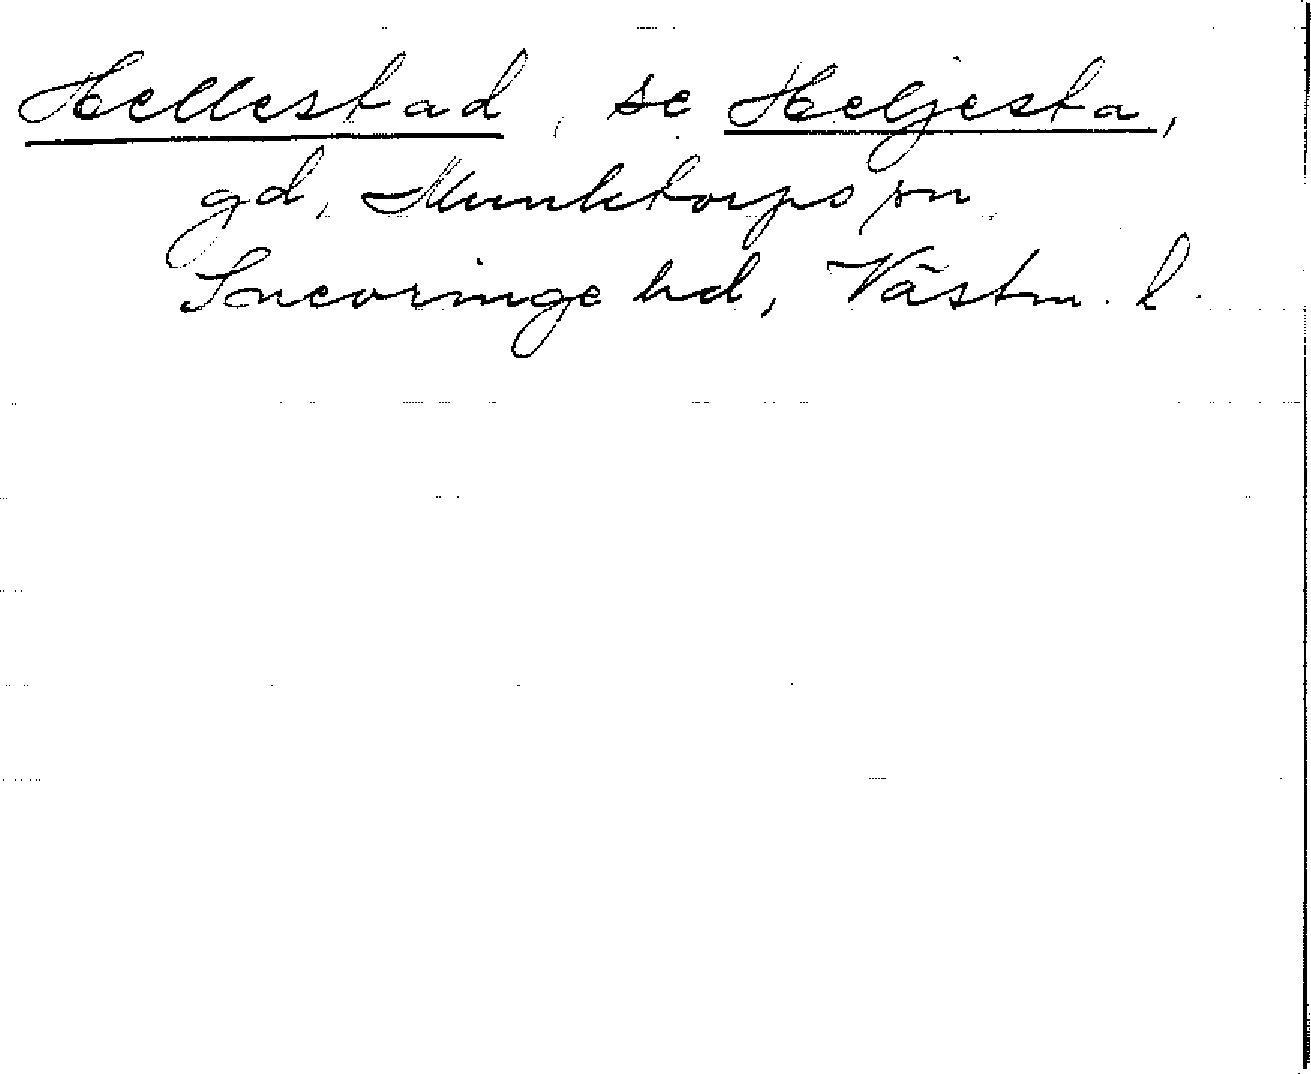 Hellestad, se Heljesta,
gd, Munktorps sn
Snevringe hd, Västm. l.